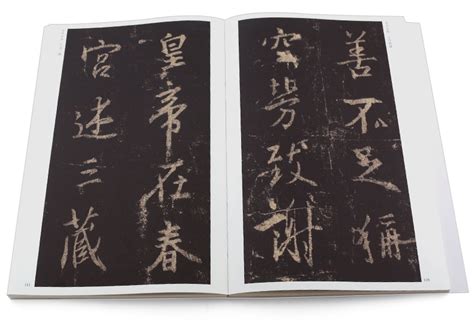 善不足稱
空勞致謝
皇帝在春
宮述三藏